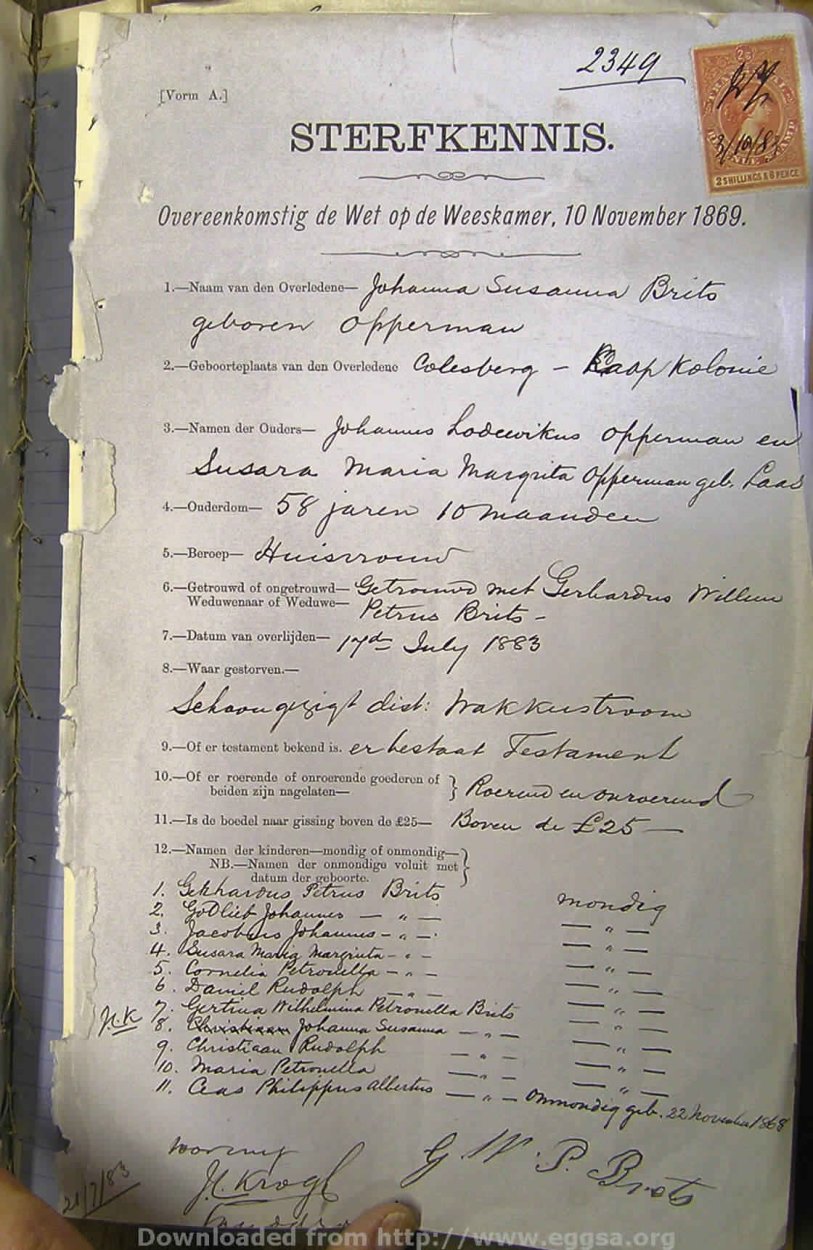 2349
[Vorm A.]
STERFKENNIS.
2 SHILLINGS & 6 PENCE
3/10/83
Overeenkomstig de Wet op de Weeskamer, 10 November 1869.
1.—Naam van den Overledene— Johanna Susanna Brits
geboren Opperman
2.—Geboorteplaats van den Overledene Colesberg – Kaap Kolonie
3.—Namen der Ouders— Johannes Lodewikus Opperman en
Susara Maria Margrita Opperman geb. Laas
4.—Ouderdom— 58 jaren 10 maanden
5.—Beroep— Huisvrouw
6.—Getrouwd of ongetrouwd— Getrouwd met Gerhardus Willem
Weduwenaar of Weduwe— Petrus Brits –
7.—Datum van overlijden— 17de July 1883
8.—Waar gestorven.—
Schoongezigt dist: Wakkerstroom
9.—Of er testament bekend is. er bestaat Testament
10.—Of er roerende of onroerende goederen of
beiden zijn nagelaten— } Roerend en onroerend
11.—Is de boedel naar gissing boven de £25— Boven de £25 —
12.—Namen der kinderen—mondig of onmondig—
NB.—Namen der onmondige voluit met
datum der geboorte.
1. Gerhardus Petrus Brits mondig
2. Godlieb Johannes — " — — " —
3. Jacobus Johannes — " — — " —
4. Susara Maria Margrita — " — — " —
5. Cornelia Petronella — " — — " —
6. Daniel Rudolph — " — — " —
7. Gertina Wilhelmina Petronella Brits — " —
J.C.K 8. Johanna Susanna — " — — " —
9. Christiaan Rudolph — " — — " —
10. Maria Petronella — " — — " —
11. Philippus Albertus — " — onmondig geb. 22 November 1868
G. W. P. Brits
J.C. Krogh
21/7/83
Downloaded from http://www.eggsa.org